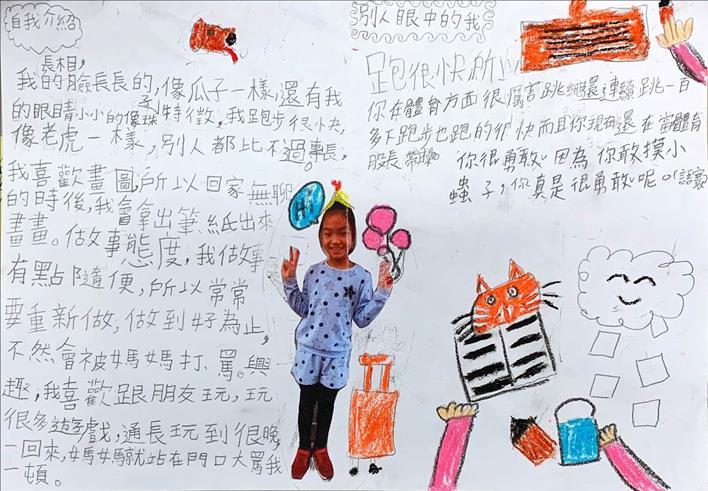 自我介紹
長相,
我的臉長長的,像瓜子一樣,還有我
的眼睛小小的像珠子
特徵,我跑步很快,
像老虎一樣,別人都比不過
事長,
我喜歡畫圖,所以回家無聊
的時後,我會拿出筆紙出來
畫畫。做事態度,我做事
有點隨便,所以常常
要重新做,做到好為止,
不然會被媽媽打、罵。興
趣,我喜歡跟朋友玩,玩
很多遊戲,通長玩到很晚,
一回來,媽媽就站在門口大罵我
一頓。
Hi
別人眼中的我
跑很快所以
你在體育方面很厲害跳繩還連續跳一百
多下跑步也跑的很快而且你現在還在當體育
股長
你很勇敢。因為你敢摸小
蟲子,你真是很勇敢呢。